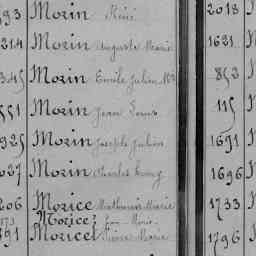 693 Morin René 2018
214 Morin Auguste Marie 1621
345 Morin Emile Julien Mie 852
551 Morin Jean Louis 115
925 Morin Joseph Julien 1691
027 Morin Charles 1696
206 Morice Mathurin Marie 1733
Morice Jean Marie
491 Moricet Pierre Marie 1796